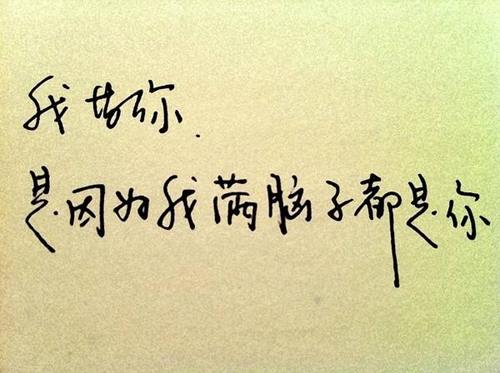 我帮你.
是因为我满脑子都是你